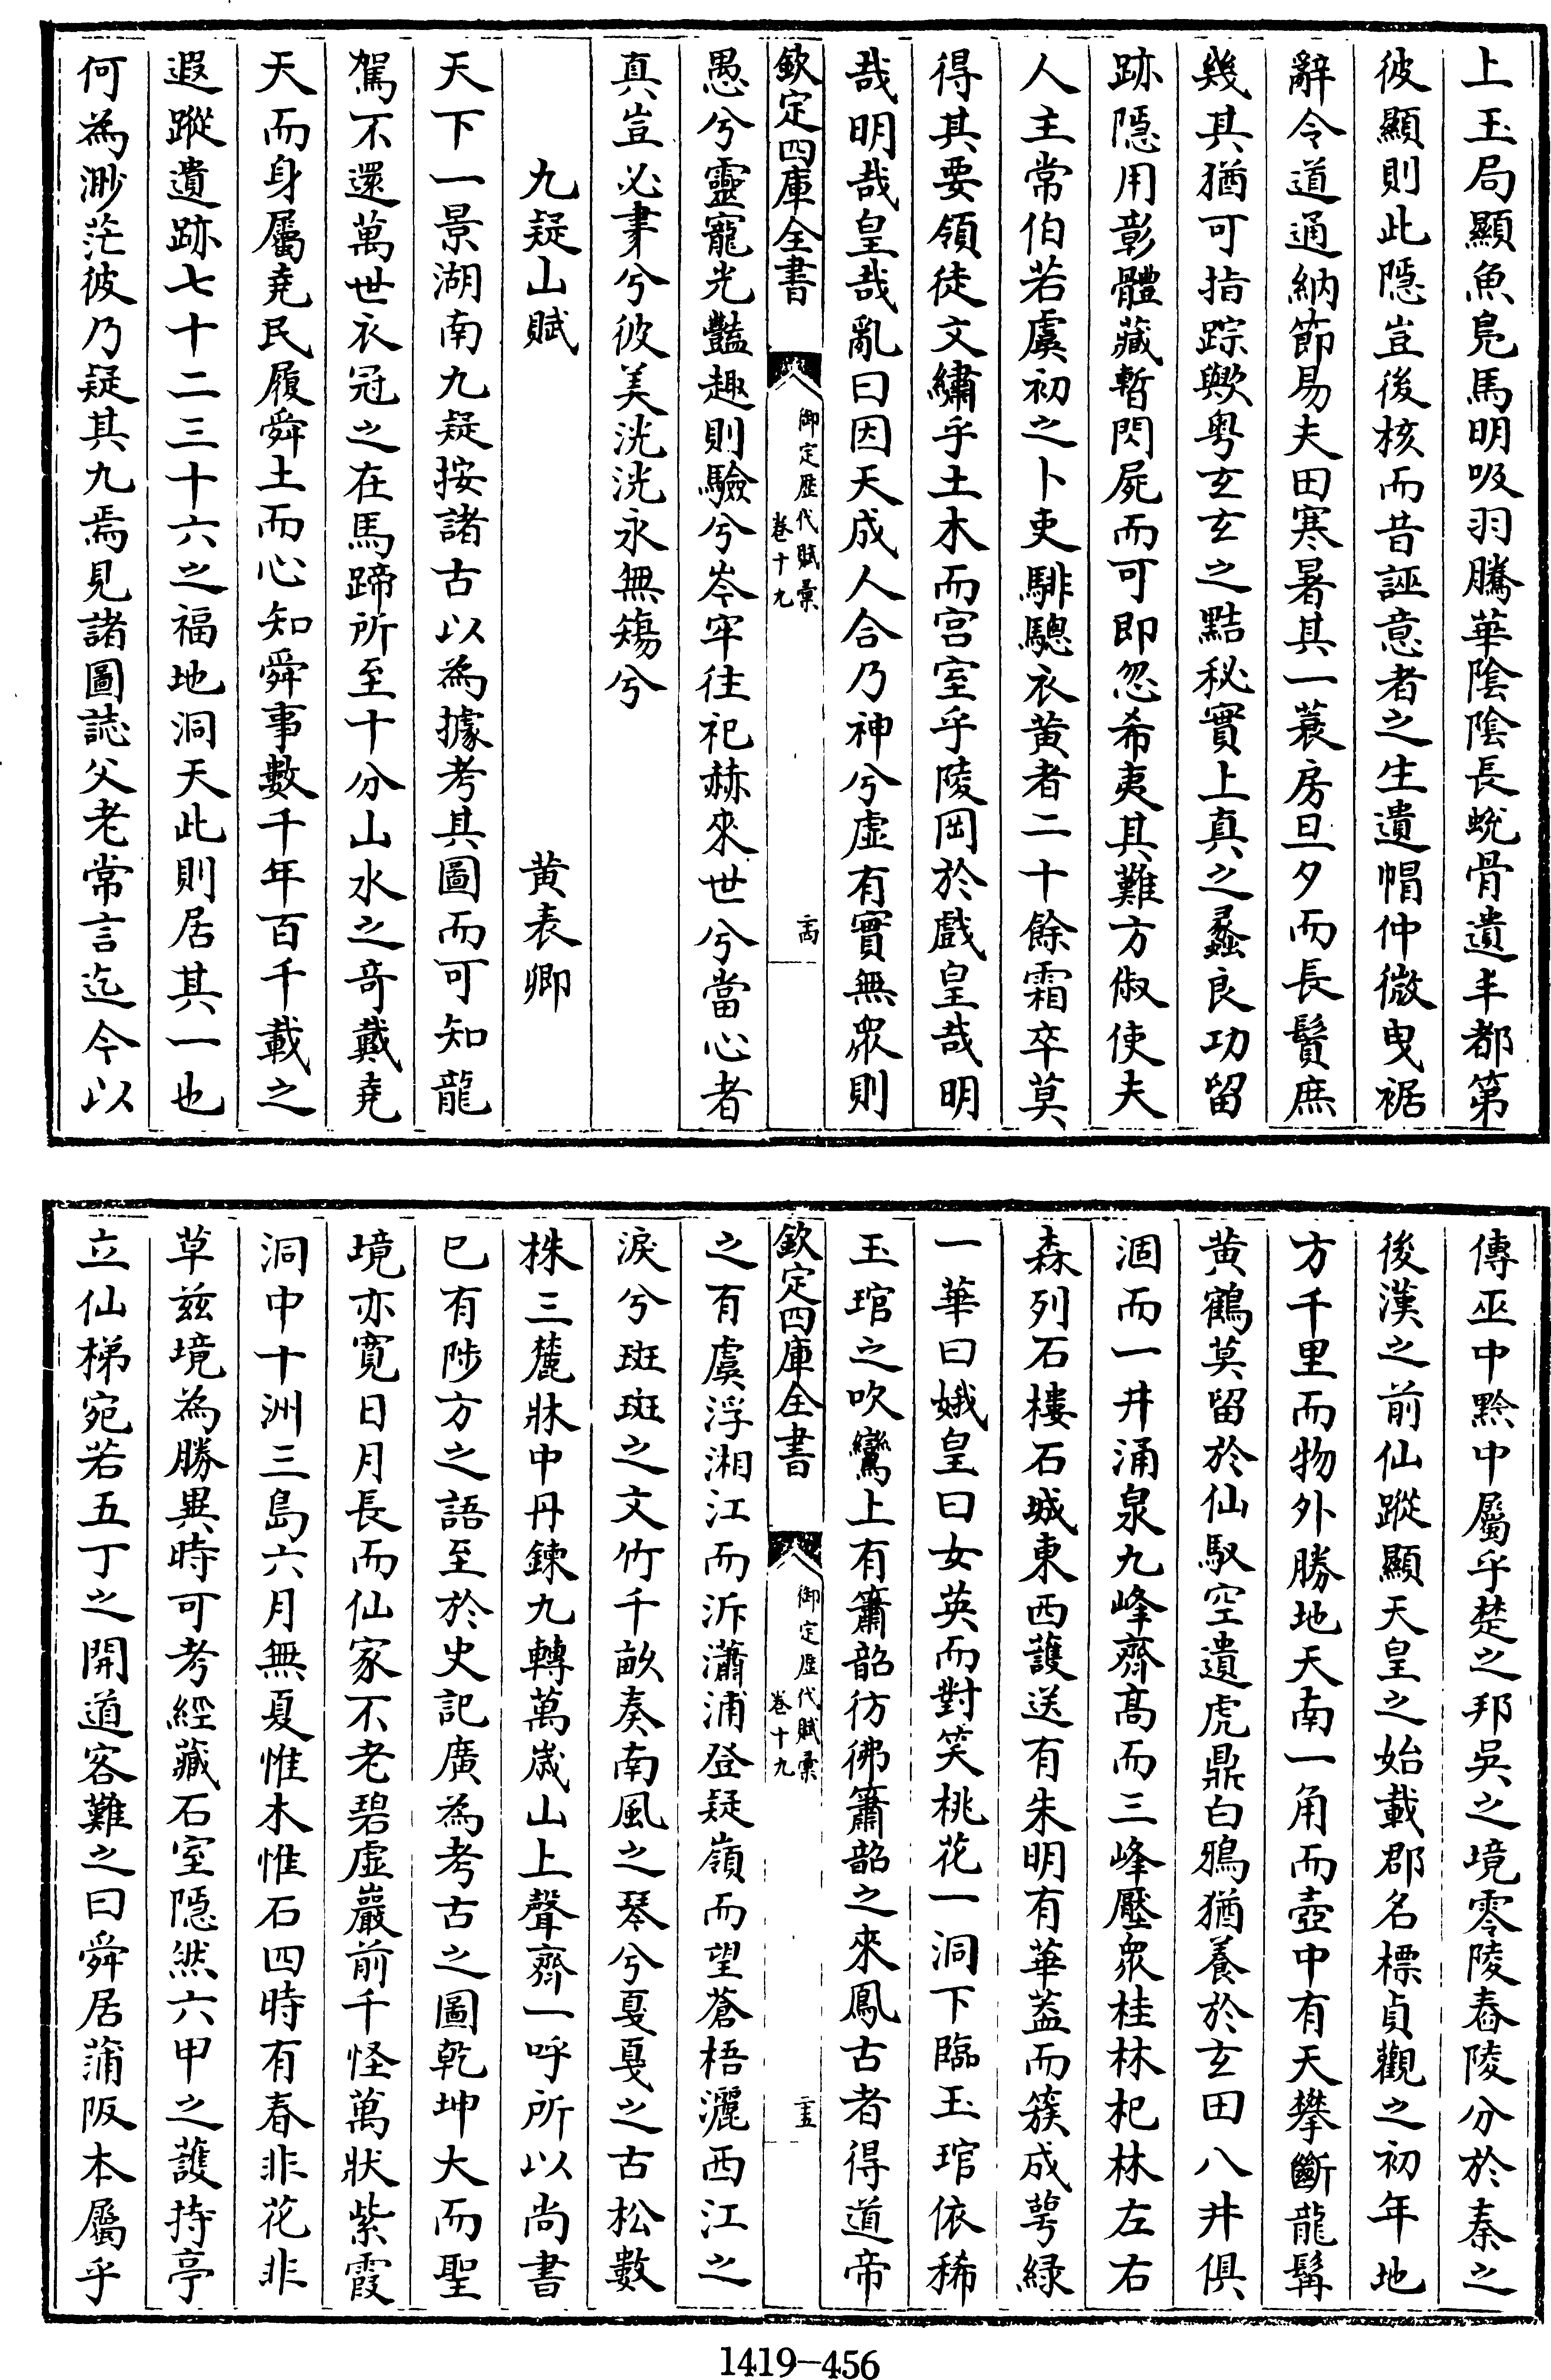 上玉局顯魚鳧馬明吸羽騰華陰陰長蛻骨遺丰都第
彼顯則此隱豈後核而昔誣意者之生遺帽仲微曳裾
辭令道通納節易夫田寒暑其一蓑房旦夕而長鬢庶
幾其猶可指踪歟粵玄玄之點秘實上真之蠡良功留
跡隱用彰體藏暫閃屍而可即忽希夷其難方俶使夫
人主常伯若虞初之卜吏騑驄衣黄者二十餘霜卒莫
得其要領徒文繡乎土木而宫室乎陵岡於戲皇哉明
哉明哉皇哉亂曰因天成人合乃神兮虚有實無衆則
欽定四庫全書
御定歷代賦彙
卷十九
愚兮靈寵光豔趣則驗兮岑牢往祀赫來世兮當心者
真豈必聿兮彼美洸洸永無殤兮
九疑山賦
黄表卿
天下一景湖南九疑按諸古以為據考其圖而可知龍
駕不還萬世衣冠之在馬蹄所至十分山水之奇戴堯
天而身屬堯民履舜土而心知舜事數千年百千載之
遐蹤遺跡七十二三十六之福地洞天此則居其一也
何為渺茫彼乃疑其九焉見諸圖誌父老常言迄今以
傳巫中黔中屬乎楚之邦吳之境零陵舂陵分於秦之
後漢之前仙蹤顯天皇之始載郡名標貞觀之初年地
方千里而物外勝地天南一角而壺中有天攀斷龍髯
黄鶴莫留於仙馭空遺虎鼎白鴉猶養於玄田八井俱
涸而一井涌泉九峰齊髙而三峰壓衆桂林杞林左右
森列石樓石城東西護送有朱明有華葢而簇成萼緑
一華曰娥皇曰女英而對笑桃花一洞下臨玉琯依稀
玉琯之吹鸞上有簫韶彷彿簫韶之來鳳古者得道帝
欽定四庫全書
御定歷代賦彙
卷十九
之有虞浮湘江而泝瀟浦登疑嶺而望蒼梧灑西江之
淚兮斑斑之文竹千畝奏南風之琴兮戛戛之古松數
株三麓牀中丹鍊九轉萬嵗山上聲齊一呼所以尚書
巳有陟方之語至於史記廣為考古之圖乾坤大而聖
境亦寛日月長而仙家不老碧虚巖前千怪萬狀紫霞
洞中十洲三島六月無夏惟木惟石四時有春非花非
草兹境為勝異時可考經藏石室隱然六甲之護持亭
立仙梯宛若五丁之開道客難之曰舜居蒲阪本屬乎
1419-456